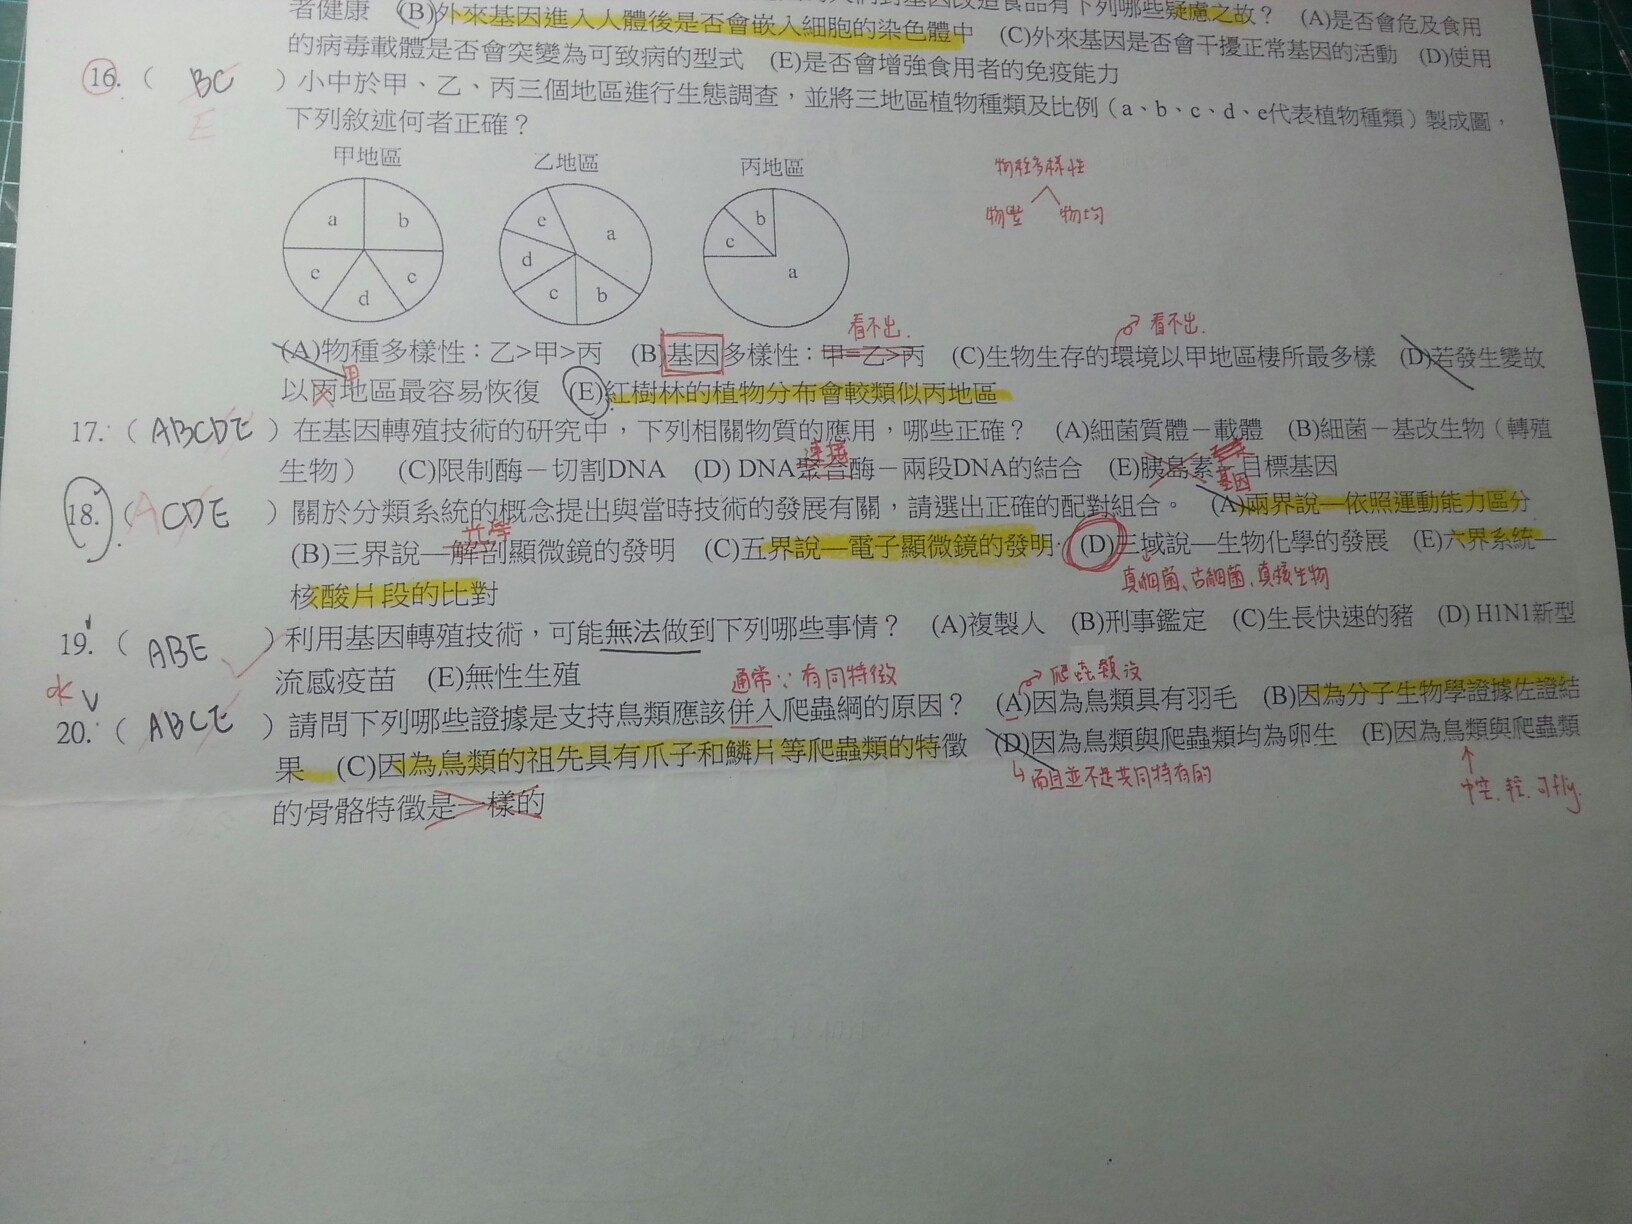 們對基因改造食品有下列哪些疑慮之故？ (A)是否會危及食用
者健康 (B)外來基因進入人體後是否會嵌入細胞的染色體中 (C)外來基因是否會干擾正常基因的活動 (D)使用
的病毒載體是否會突變為可致病的型式 (E)是否會增強食用者的免疫能力
16. ( BC E )小中於甲、乙、丙三個地區進行生態調查，並將三地區植物種類及比例（a、b、c、d、e代表植物種類）製成圖，
下列敘述何者正確？
甲地區 乙地區 丙地區
a b c d e
a b c d e
a b c
物種多樣性
物豐 物均
看不出.
看不出.
(A)物種多樣性：乙>甲>丙 (B)基因多樣性：甲=乙>丙 (C)生物生存的環境以甲地區棲所最多樣 (D)若發生變故
甲
以丙地區最容易恢復 (E)紅樹林的植物分布會較類似丙地區
17. ( ABCDE )在基因轉殖技術的研究中，下列相關物質的應用，哪些正確？ (A)細菌質體－載體 (B)細菌－基改生物（轉殖
連接
生物） (C)限制酶－切割DNA (D) DNA聚合酶－兩段DNA的結合 (E)胰島素－目標基因
基因
18. ( ACDE )關於分類系統的概念提出與當時技術的發展有關，請選出正確的配對組合。 (A)兩界說—依照運動能力區分
光學
(B)三界說—解剖顯微鏡的發明 (C)五界說—電子顯微鏡的發明 (D)三域說—生物化學的發展 (E)六界系統—
真細菌、古細菌、真核生物
核酸片段的比對
19. ( ABE )利用基因轉殖技術，可能無法做到下列哪些事情？ (A)複製人 (B)刑事鑑定 (C)生長快速的豬 (D) H1N1新型
流感疫苗 (E)無性生殖
通常∵有同特徵
爬蟲類沒
20. ( ABCE )請問下列哪些證據是支持鳥類應該併入爬蟲綱的原因？ (A)因為鳥類具有羽毛 (B)因為分子生物學證據佐證結
果 (C)因為鳥類的祖先具有爪子和鱗片等爬蟲類的特徵 (D)因為鳥類與爬蟲類均為卵生 (E)因為鳥類與爬蟲類
而且並不是共同特有的
中空. 輕. 可fly.
的骨骼特徵是一樣的